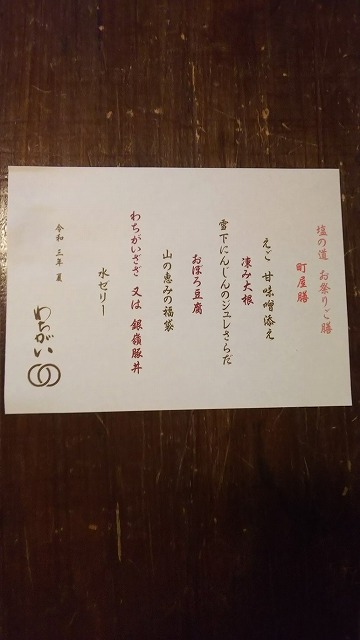 塩の道 お祭りご膳
町屋膳
えご 甘味噌添え
凍み大根
雪下にんじんのジュレさらだ
おぼろ豆腐
山の恵みの福袋
わちがいざざ 又は 銀嶺豚丼
水ゼリー
令和 三年 夏
わちがい